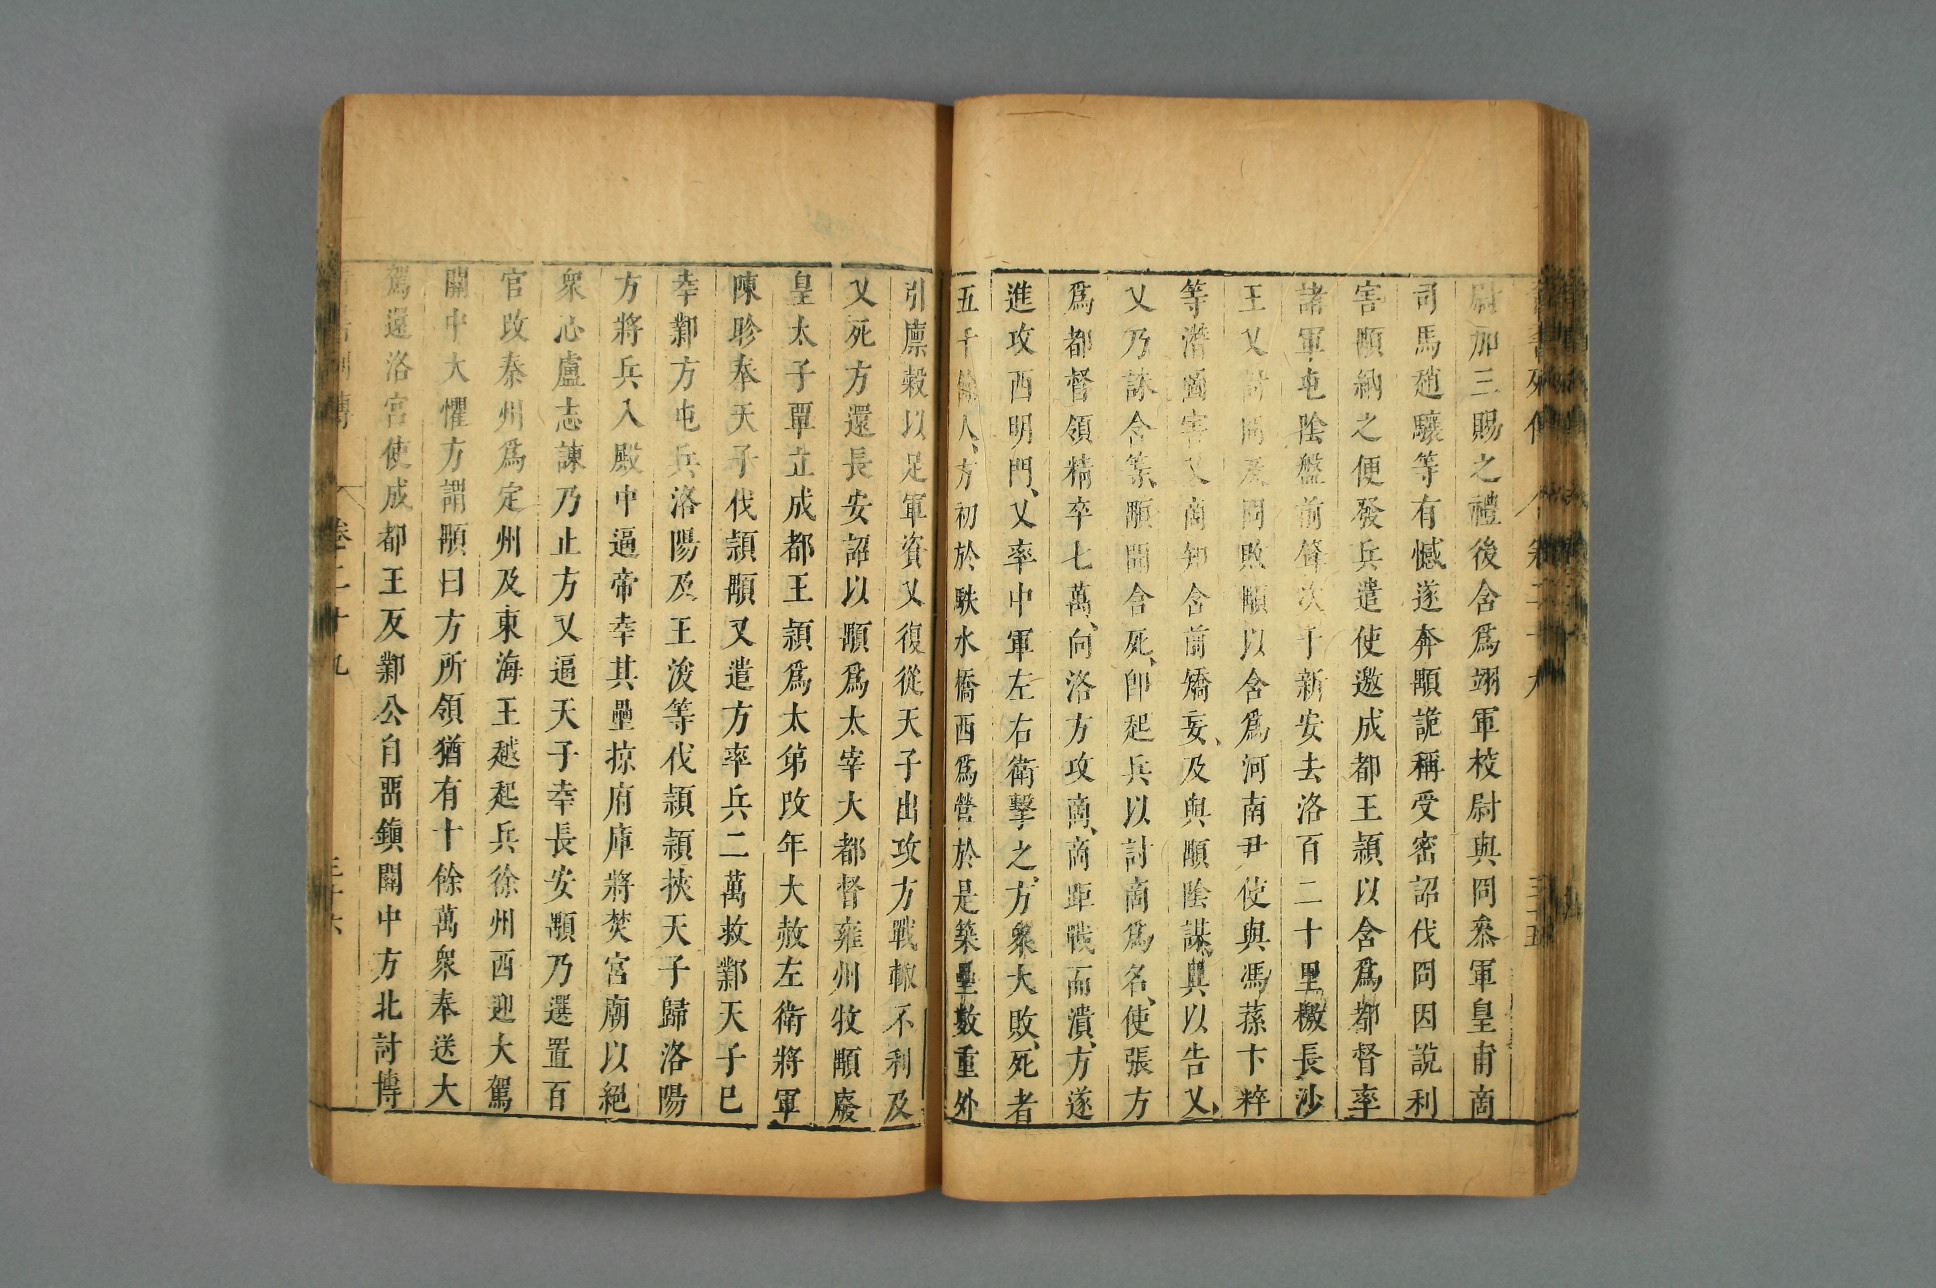 尉加三賜之禮後含爲翊軍校尉與冏叅軍皇甫商
司馬趙驤等有憾遂奔顒詭稱受密詔伐冏因說利
害顒納之便發兵遣使邀成都王穎以含爲都督率
諸軍屯陰盤前鋒次于新安去洛百二十里檄長沙
王乂討冏及冏敗顒以含爲河南尹使與馮蓀卞粹
等潛圖害乂商知含前矯妄及與顒陰謀具以告乂
乂乃誅含等顒聞含死卽起兵以討商爲名使張方
爲都督領精卒七萬向洛方攻商商距戰而潰方遂
進攻西明門乂率中軍左右衛擊之方衆大敗死者
五千餘人方初於駃水橋西爲營於是築壘數重外
引廩穀以足軍資乂復從天子出攻方戰輙不利及
乂死方還長安詔以顒爲太宰大都督雍州牧顒廢
皇太子覃立成都王穎爲太弟改年大赦左衛將軍
陳眕奉天子伐穎顒又遣方率兵二萬救鄴天子已
幸鄴方屯兵洛陽及王浚等伐穎穎挾天子歸洛陽
方將兵入殿中逼帝幸其壘掠府庫將焚宮廟以絕
衆心盧志諫乃止方又逼天子幸長安顒乃選置百
官改秦州爲定州及東海王越起兵徐州西迎大駕
關中大懼方謂顒曰方所領猶有十餘萬衆奉送大
駕還洛宮使成都王反鄴公自留鎮關中方北討博
卷二十九
三十六